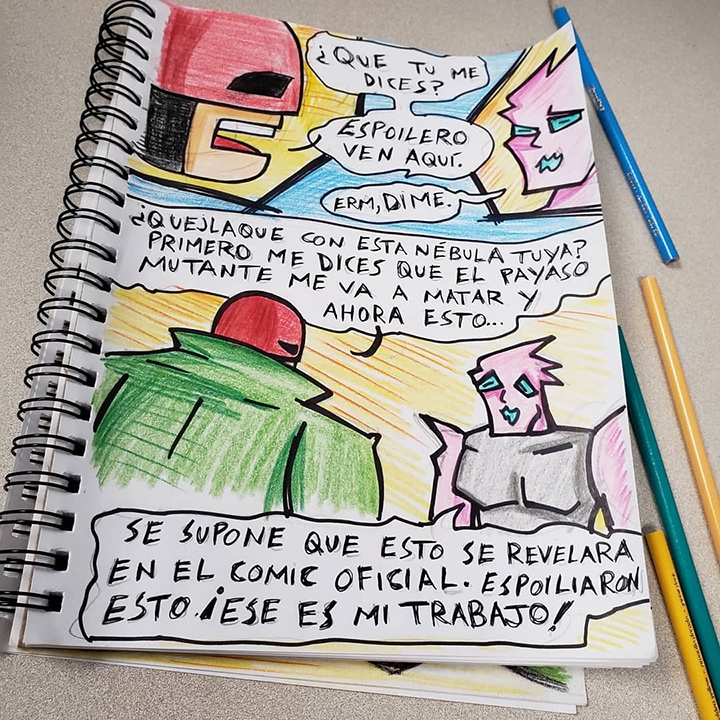 ¿QUE TU ME
DICES?
ESPOILERO
VEN AQUÍ.
ERM, DIME.
¿QUEJLAQUE CON ESTA NÉBULA TUYA?
PRIMERO ME DICES QUE EL PAYASO
MUTANTE ME VA A MATAR Y
AHORA ESTO...
SE SUPONE QUE ESTO SE REVELARA
EN EL COMIC OFICIAL. ESPOILIARON
ESTO. ¡ESE ES MI TRABAJO!